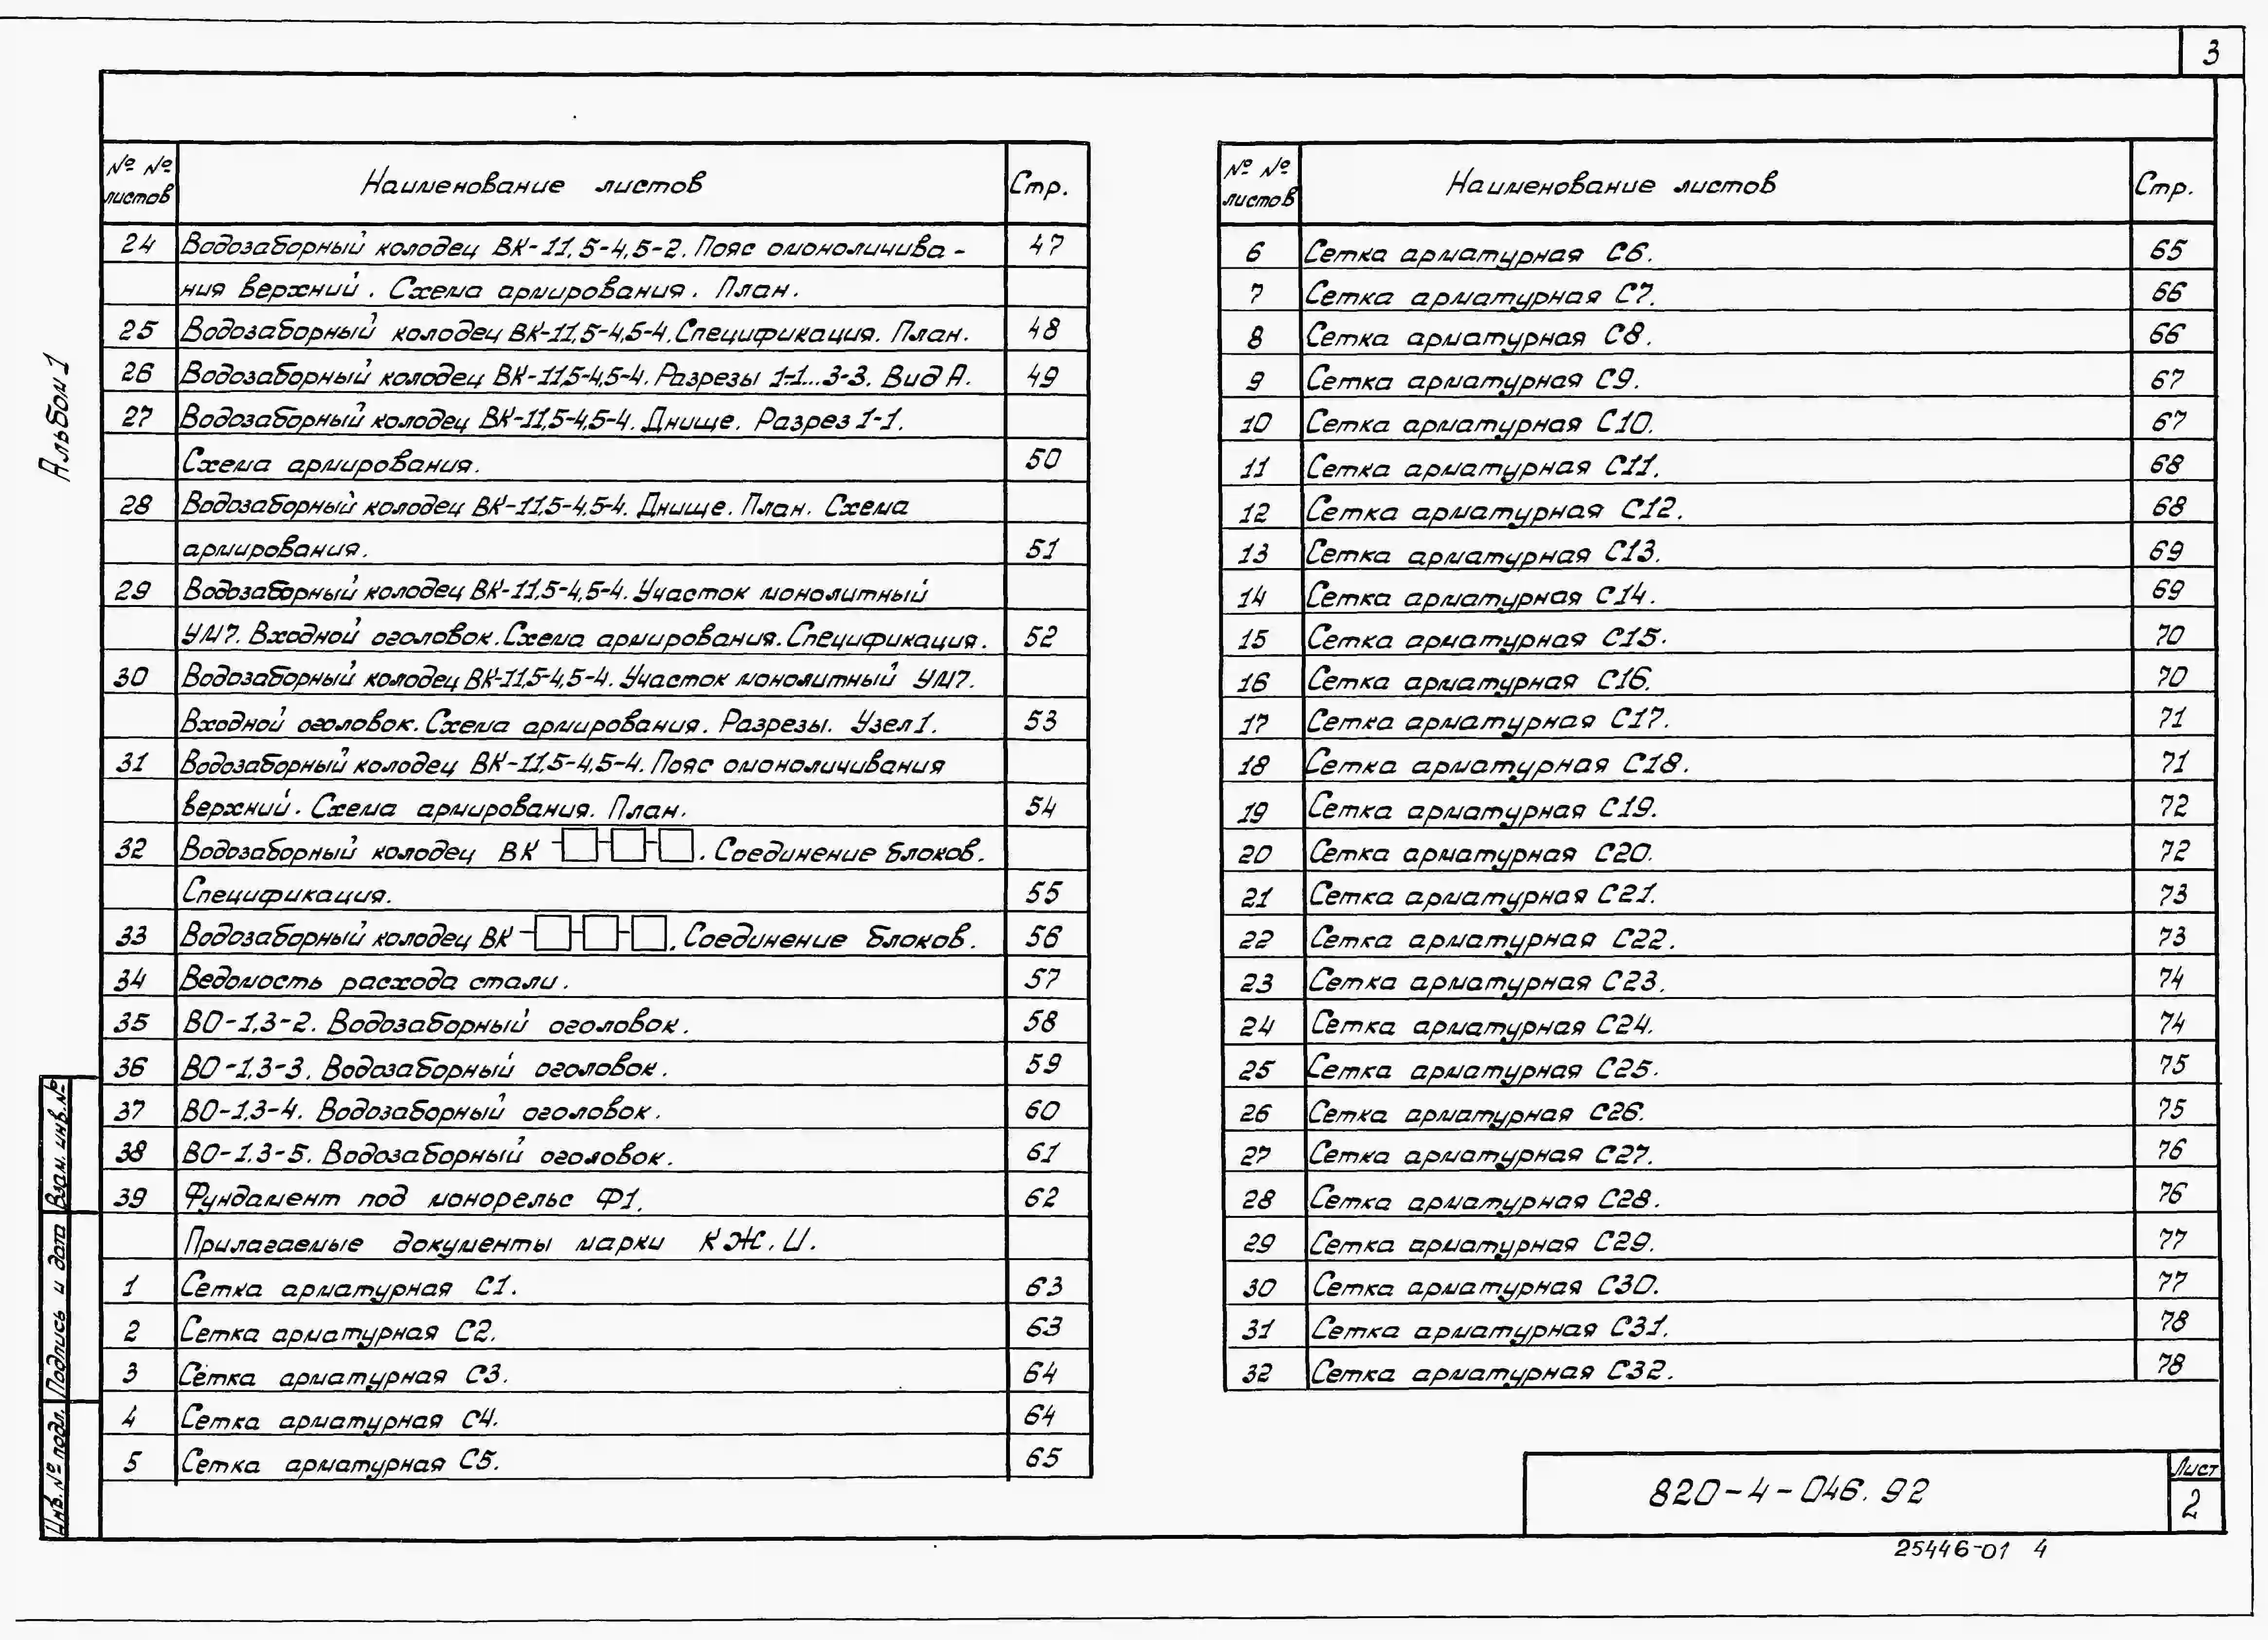 3
Альбом 1
№ № листов Наименование листов Стр.
24 Водозаборный колодец ВК-11,5-4,5-2. Пояс омоноличива- 47
ния верхний. Схема армирования. План.
25 Водозаборный колодец ВК-11,5-4,5-4. Спецификация. План. 48
26 Водозаборный колодец ВК-11,5-4,5-4. Разрезы 1-1...3-3. Вид А. 49
27 Водозаборный колодец ВК-11,5-4,5-4. Днище. Разрез 1-1.
Схема армирования. 50
28 Водозаборный колодец ВК-11,5-4,5-4. Днище. План. Схема
армирования. 51
29 Водозаборный колодец ВК-11,5-4,5-4. Участок монолитный
УМ7. Входной оголовок. Схема армирования. Спецификация. 52
30 Водозаборный колодец ВК-11,5-4,5-4. Участок монолитный УМ7.
Входной оголовок. Схема армирования. Разрезы. Узел 1. 53
31 Водозаборный колодец ВК-11,5-4,5-4. Пояс омоноличивания
верхний. Схема армирования. План. 54
32 Водозаборный колодец ВК-□-□-□. Соединение блоков.
Спецификация. 55
33 Водозаборный колодец ВК-□-□-□. Соединение блоков. 56
34 Ведомость расхода стали. 57
35 ВО-1,3-2. Водозаборный оголовок. 58
36 ВО-1,3-3. Водозаборный оголовок. 59
37 ВО-1,3-4. Водозаборный оголовок. 60
38 ВО-1,3-5. Водозаборный оголовок. 61
39 Фундамент под монорельс Ф1. 62
Прилагаемые документы марки КЖ.И.
1 Сетка арматурная С1. 63
2 Сетка арматурная С2. 63
3 Сетка арматурная С3. 64
4 Сетка арматурная С4. 64
5 Сетка арматурная С5. 65
№ № листов Наименование листов Стр.
6 Сетка арматурная С6. 65
7 Сетка арматурная С7. 66
8 Сетка арматурная С8. 66
9 Сетка арматурная С9. 67
10 Сетка арматурная С10. 67
11 Сетка арматурная С11. 68
12 Сетка арматурная С12. 68
13 Сетка арматурная С13. 69
14 Сетка арматурная С14. 69
15 Сетка арматурная С15. 70
16 Сетка арматурная С16. 70
17 Сетка арматурная С17. 71
18 Сетка арматурная С18. 71
19 Сетка арматурная С19. 72
20 Сетка арматурная С20. 72
21 Сетка арматурная С21. 73
22 Сетка арматурная С22. 73
23 Сетка арматурная С23. 74
24 Сетка арматурная С24. 74
25 Сетка арматурная С25. 75
26 Сетка арматурная С26. 75
27 Сетка арматурная С27. 76
28 Сетка арматурная С28. 76
29 Сетка арматурная С29. 77
30 Сетка арматурная С30. 77
31 Сетка арматурная С31. 78
32 Сетка арматурная С32. 78
Взам. инв. №
Подпись и дата
Инв. № подл.
820-4-046.92
Лист
2
25446-01 4